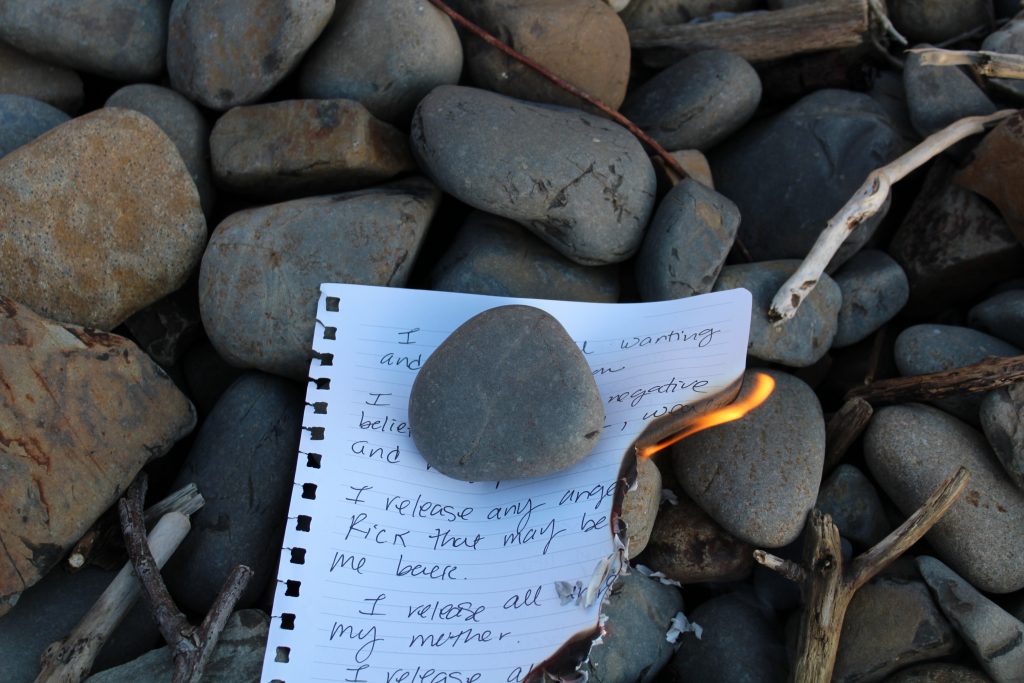 I wanting
and
I negative
belie
and
I release any ange
Rick that may be
me back.
I release all
my mother.
I release a